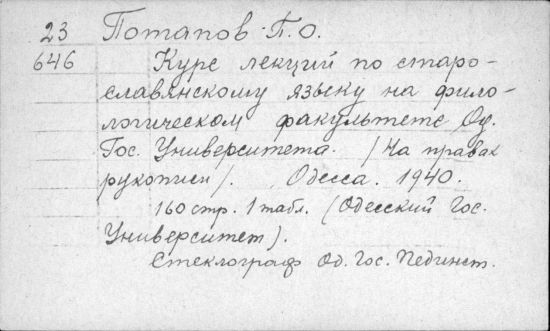 23 Потапов П.О.
646 Курс лекций по старо-
славянскому языку на фило-
логическом факультете Од.
Гос. Университета. /На правах
рукописи/. Одесса. 1940.
160 стр. 1 табл. (Одесский Гос.
Университет).
Стеклограф Од. Гос. Пединст.